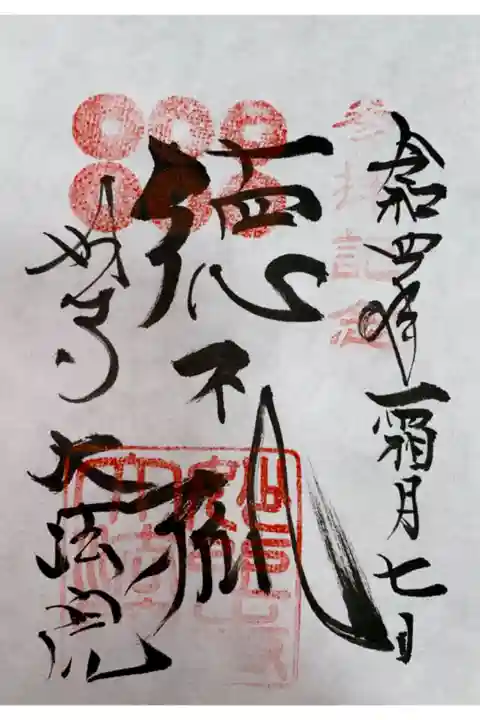 参拝記念
令和四年霜月七日
徳不孤
妙心寺 大法院